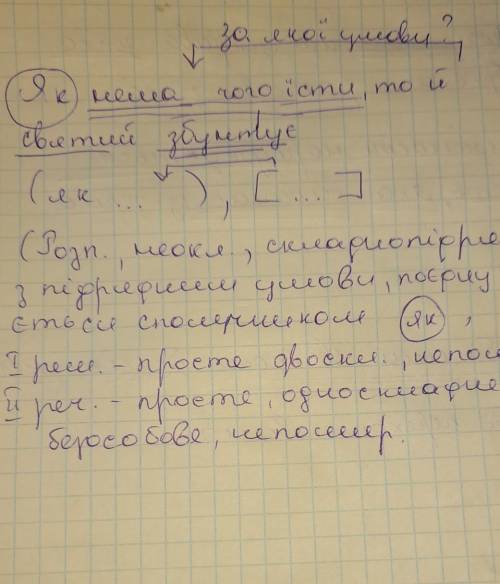 за якої умови?
Як нема чого їсти, то й
святий збунтує
(як ... ), [ ... ]
(Розп., неокл., складнопідря
з підрядним умови, поєдну
ється сполучником як,
І реч. - просте двоскл., непош
ІІ реч. - просте, односкладне
безособове, непошир.